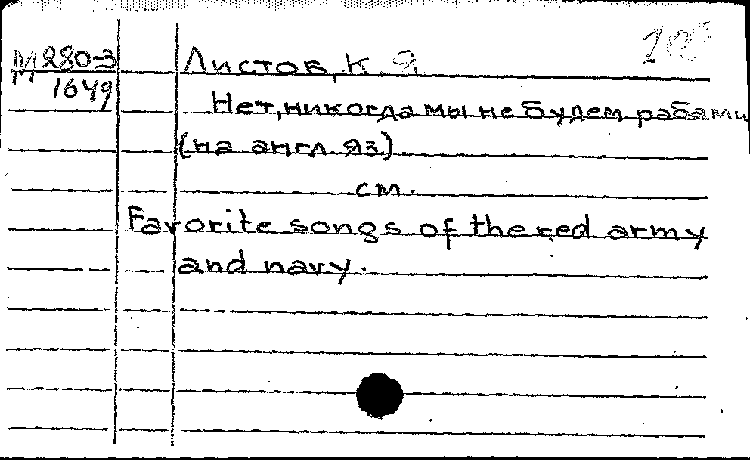 М280-3 Листов, К. Я.
1649 Нет, никогда мы не будем рабами
(на англ. яз)
см.
Favorite songs of the red army
and navy.